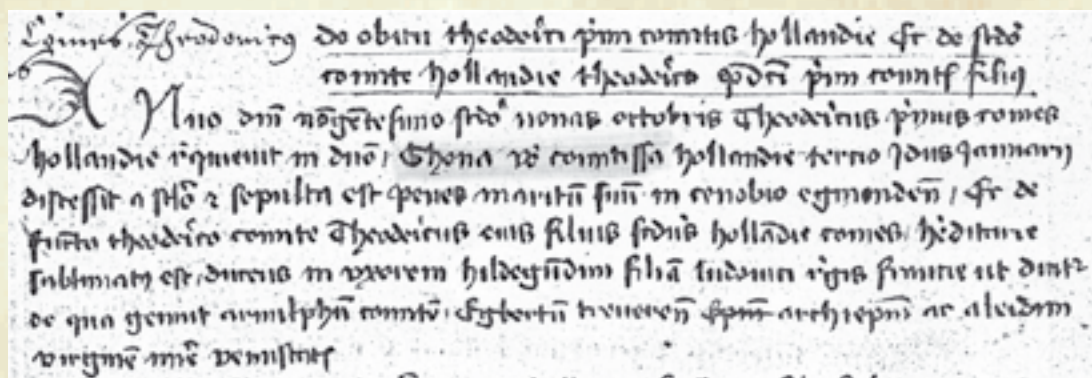 Comes Theodoricus de obitu theodrici pmi comitis hollandie Et de scdo
comite hollandie theodrico pdcti pmi comitis filius
Anno dni nogetesimo scdo nonas octobris Theodricus pmus comes
hollandie rquieuit in dno / Ghona vo comitissa hollandie tercio Idus January
discessit a sclo & sepulta est penes maritu suu in cenobio egmonden / Et de
functo theodrico comite Theodricus eius filius scdus hollandie comes heditarie
sublimatus est ducens in vxorem hildegundim filia ludouici rgis francie ut dicitr
de qua genuit arnulphu comite Egbertu treueren archiepm ac aleidam
virgine mire venustatis